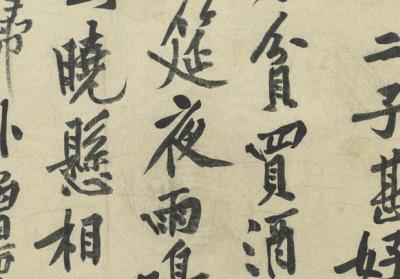 二子甚好
貧買酒
筵夜雨鳴
曉懸相
歸卧